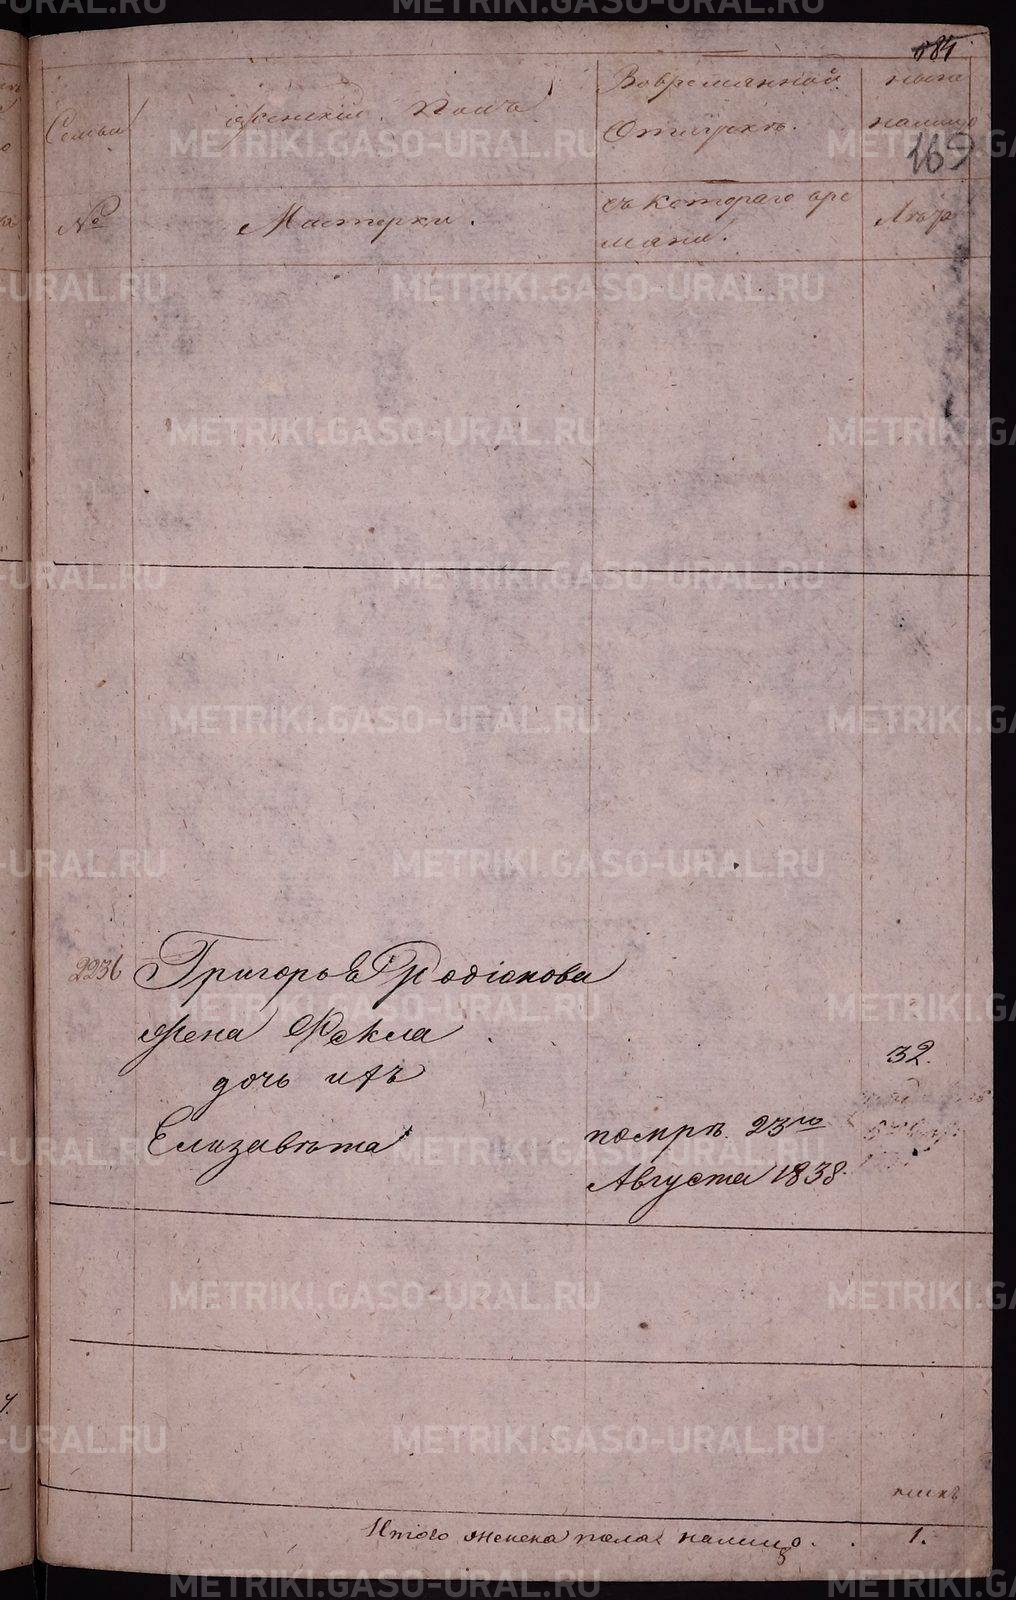 METRIKI.GASO-URAL.RU
169
Семьи
Женскiй полъ
Вовременной
Отлучкѣ.
ныне
налицо
№
Мастерки.
съ котораго вре
мяни.
Лѣта
2236
Григорья Родiонова
жена Фекла
32.
дочь ихъ
Елизавѣта
помрѣ 23го
Августа 1838.
Итого женска пола налицо . . 1.